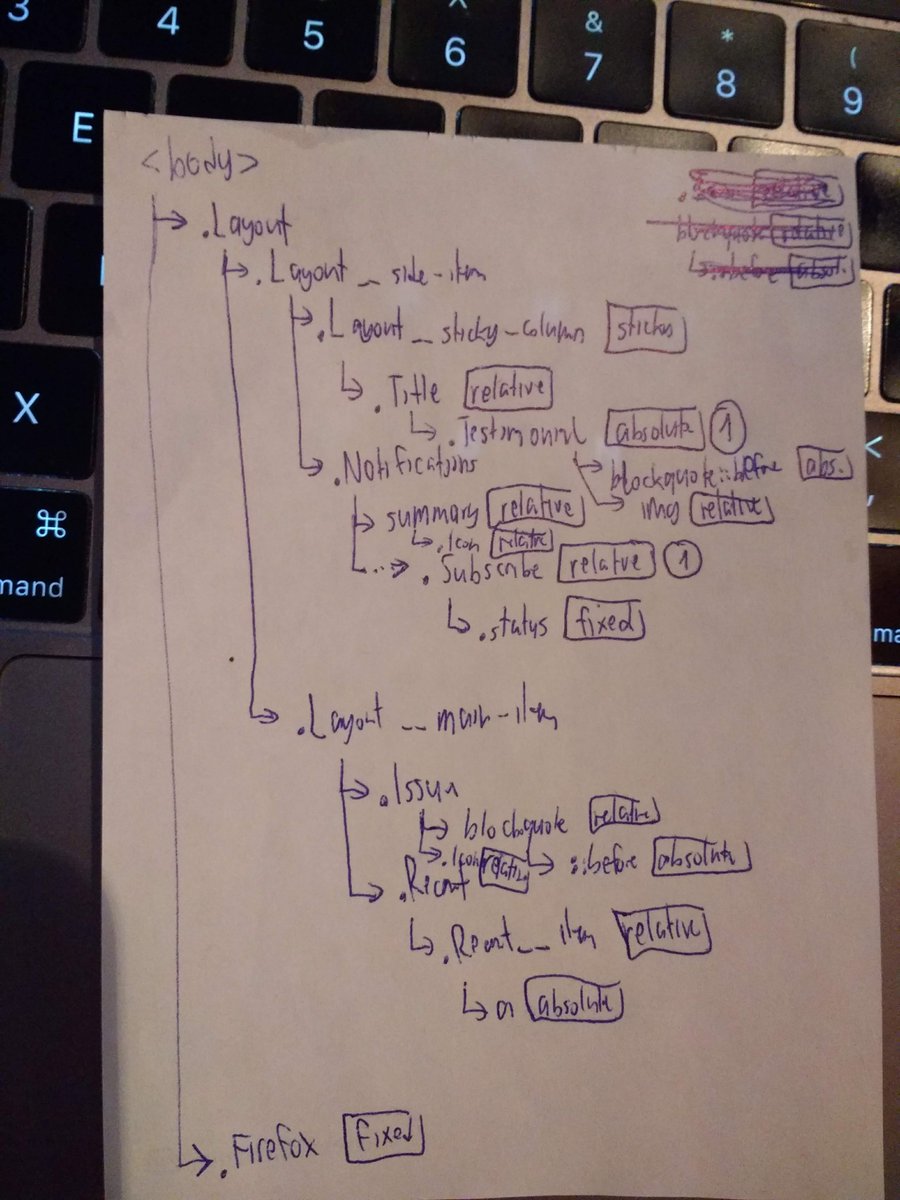 3 4 5 ^ 6 & 7 * 8 ( 9
E
<body>
.Layout
.Layout__side-item
.Layout__sticky-column sticky
.Title relative
.Testimonial absolute 1
blockquote::before abs.
.Notifications
img relative
summary relative
.Icon relative
.Subscribe relative 1
.status fixed
.Layout__main-item
.Issue
blockquote relative
.Icon relative
::before absolute
.Recent
.Recent__item relative
a absolute
.Firefox fixed
relative
blockquote relative
::before absol.
X
⌘
mand
<
ma